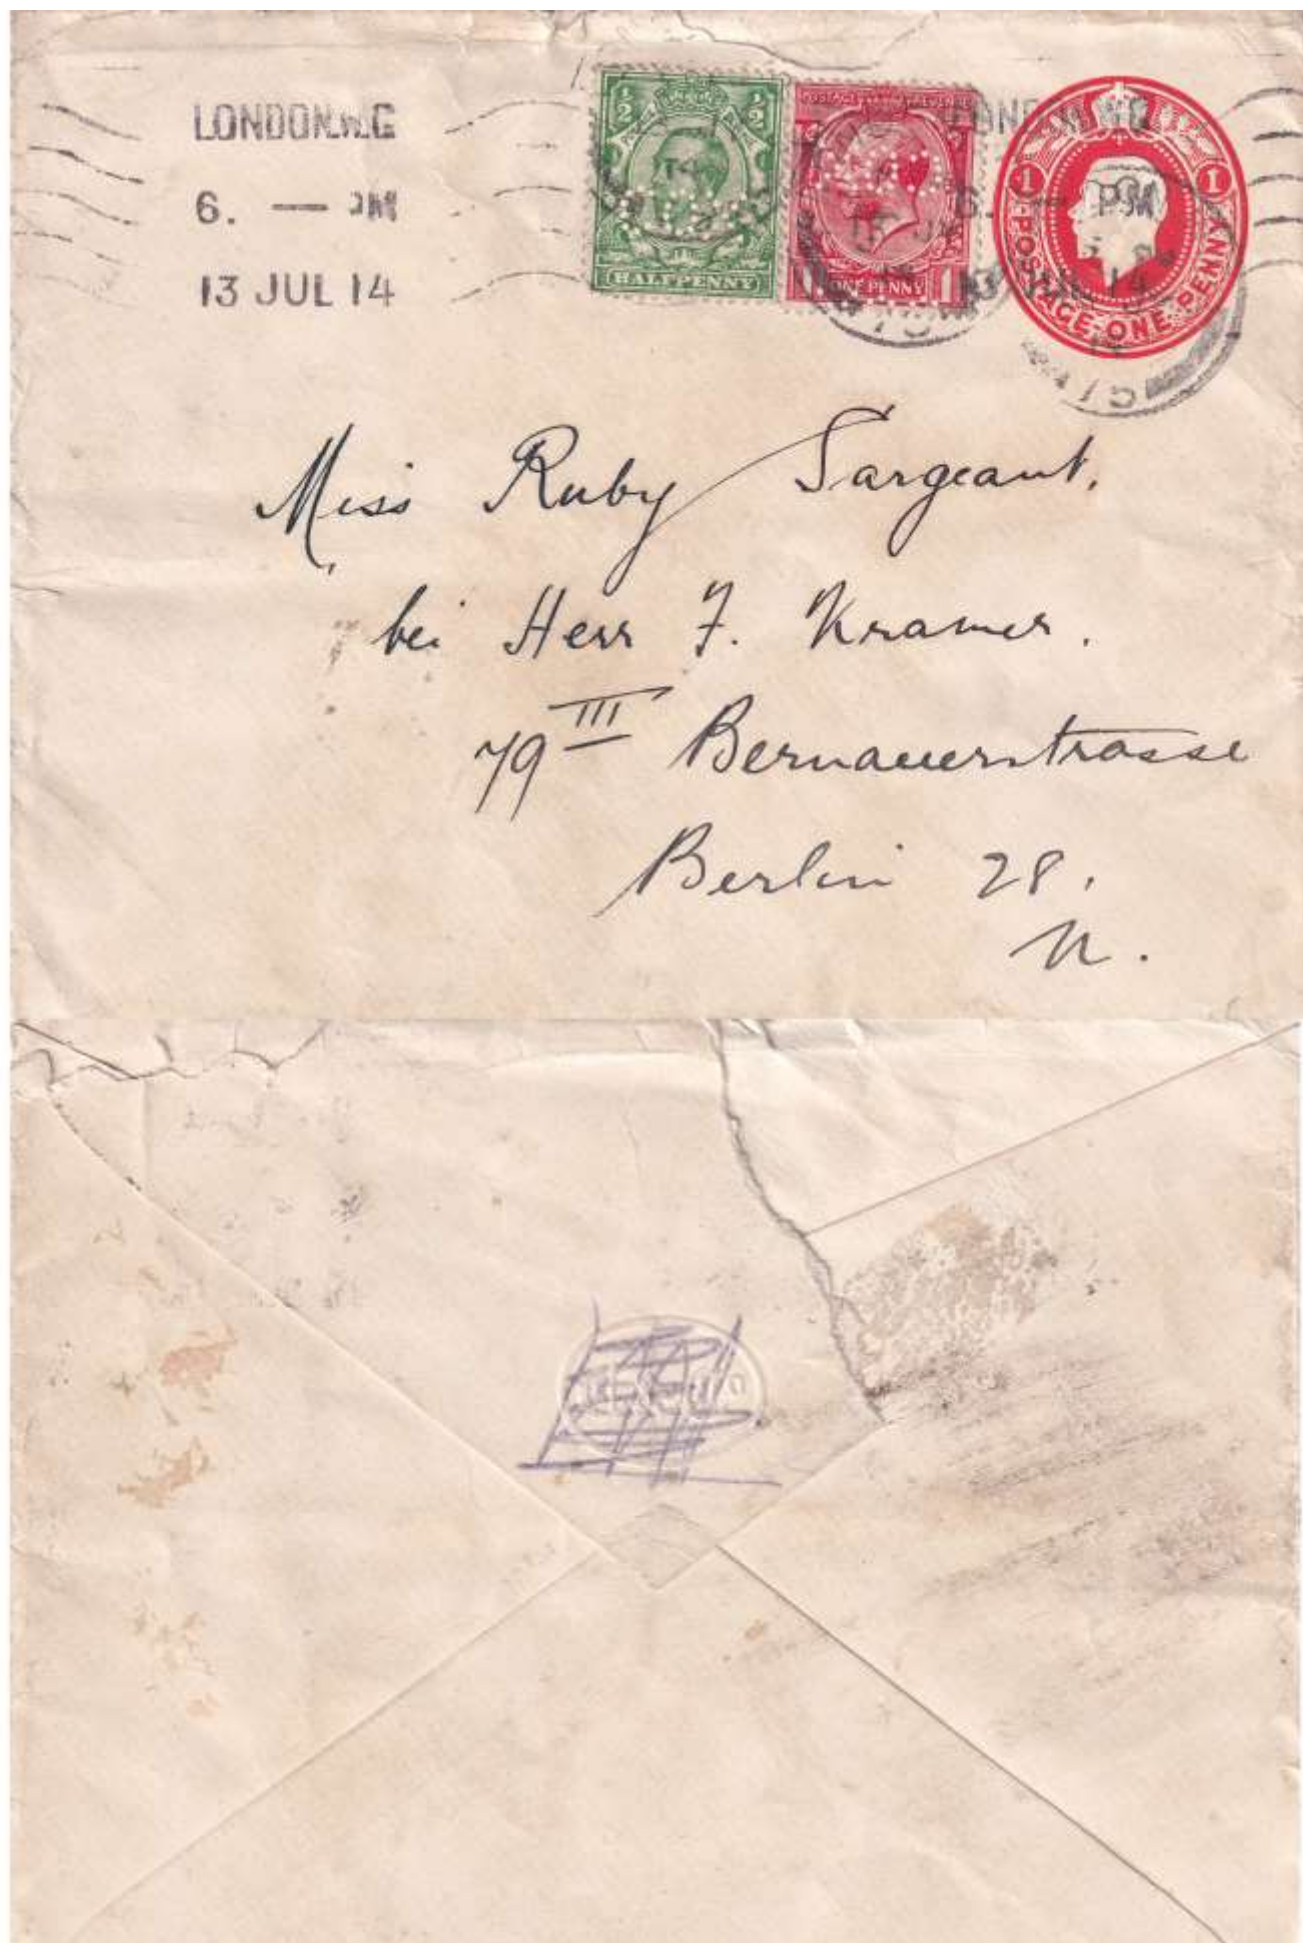 LONDON.W.C
6. — PM
13 JUL 14
½ ½
HALFPENNY
POSTAGE REVENUE
1 ONE PENNY 1
PM
JUL 14
1 1
POSTAGE·ONE·PENNY
Miss Ruby Sargeant.
bei Herr F. Kramer.
79 III Bernauerstrasse
Berlin 28.
N.